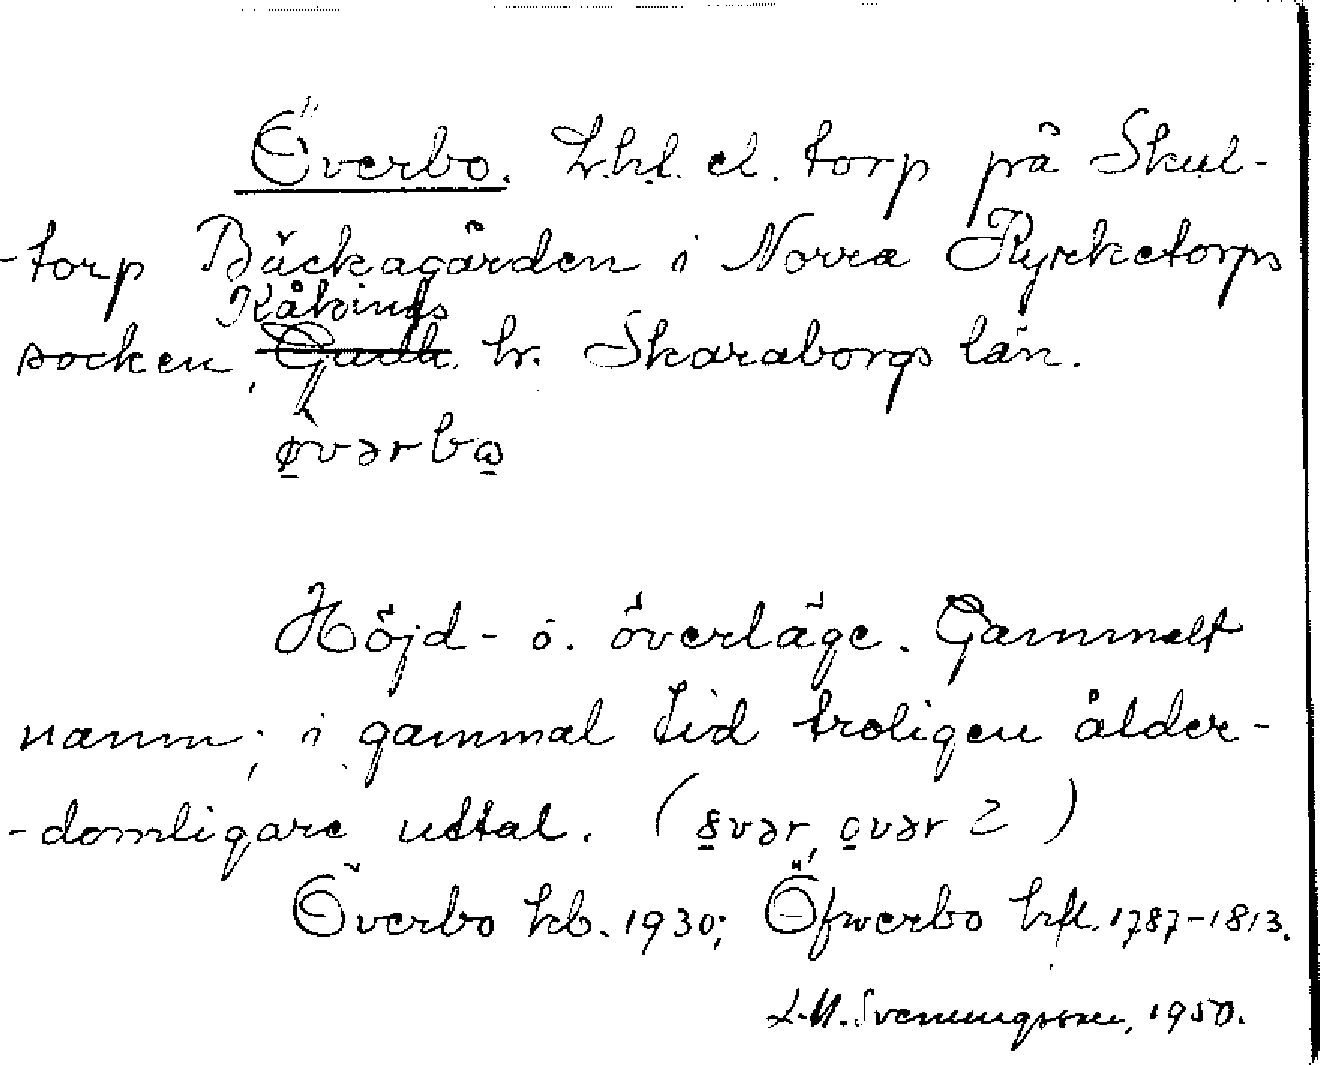 Överbo. Lht. el. torp på Skul-
-torp Bäckagården i Norra Kyrketorps
Kåkinds
socken, Gudh. hr. Skaraborgs län.
øvərbω
Höjd- o. överläge. Gammalt
namn; i gammal tid troligen ålder-
-domligare uttal. (8vər, ovər ? )
Överbo kb. 1930; Öfwerbo hfl. 1787-1813.
L.M. Svenungsson, 1950.